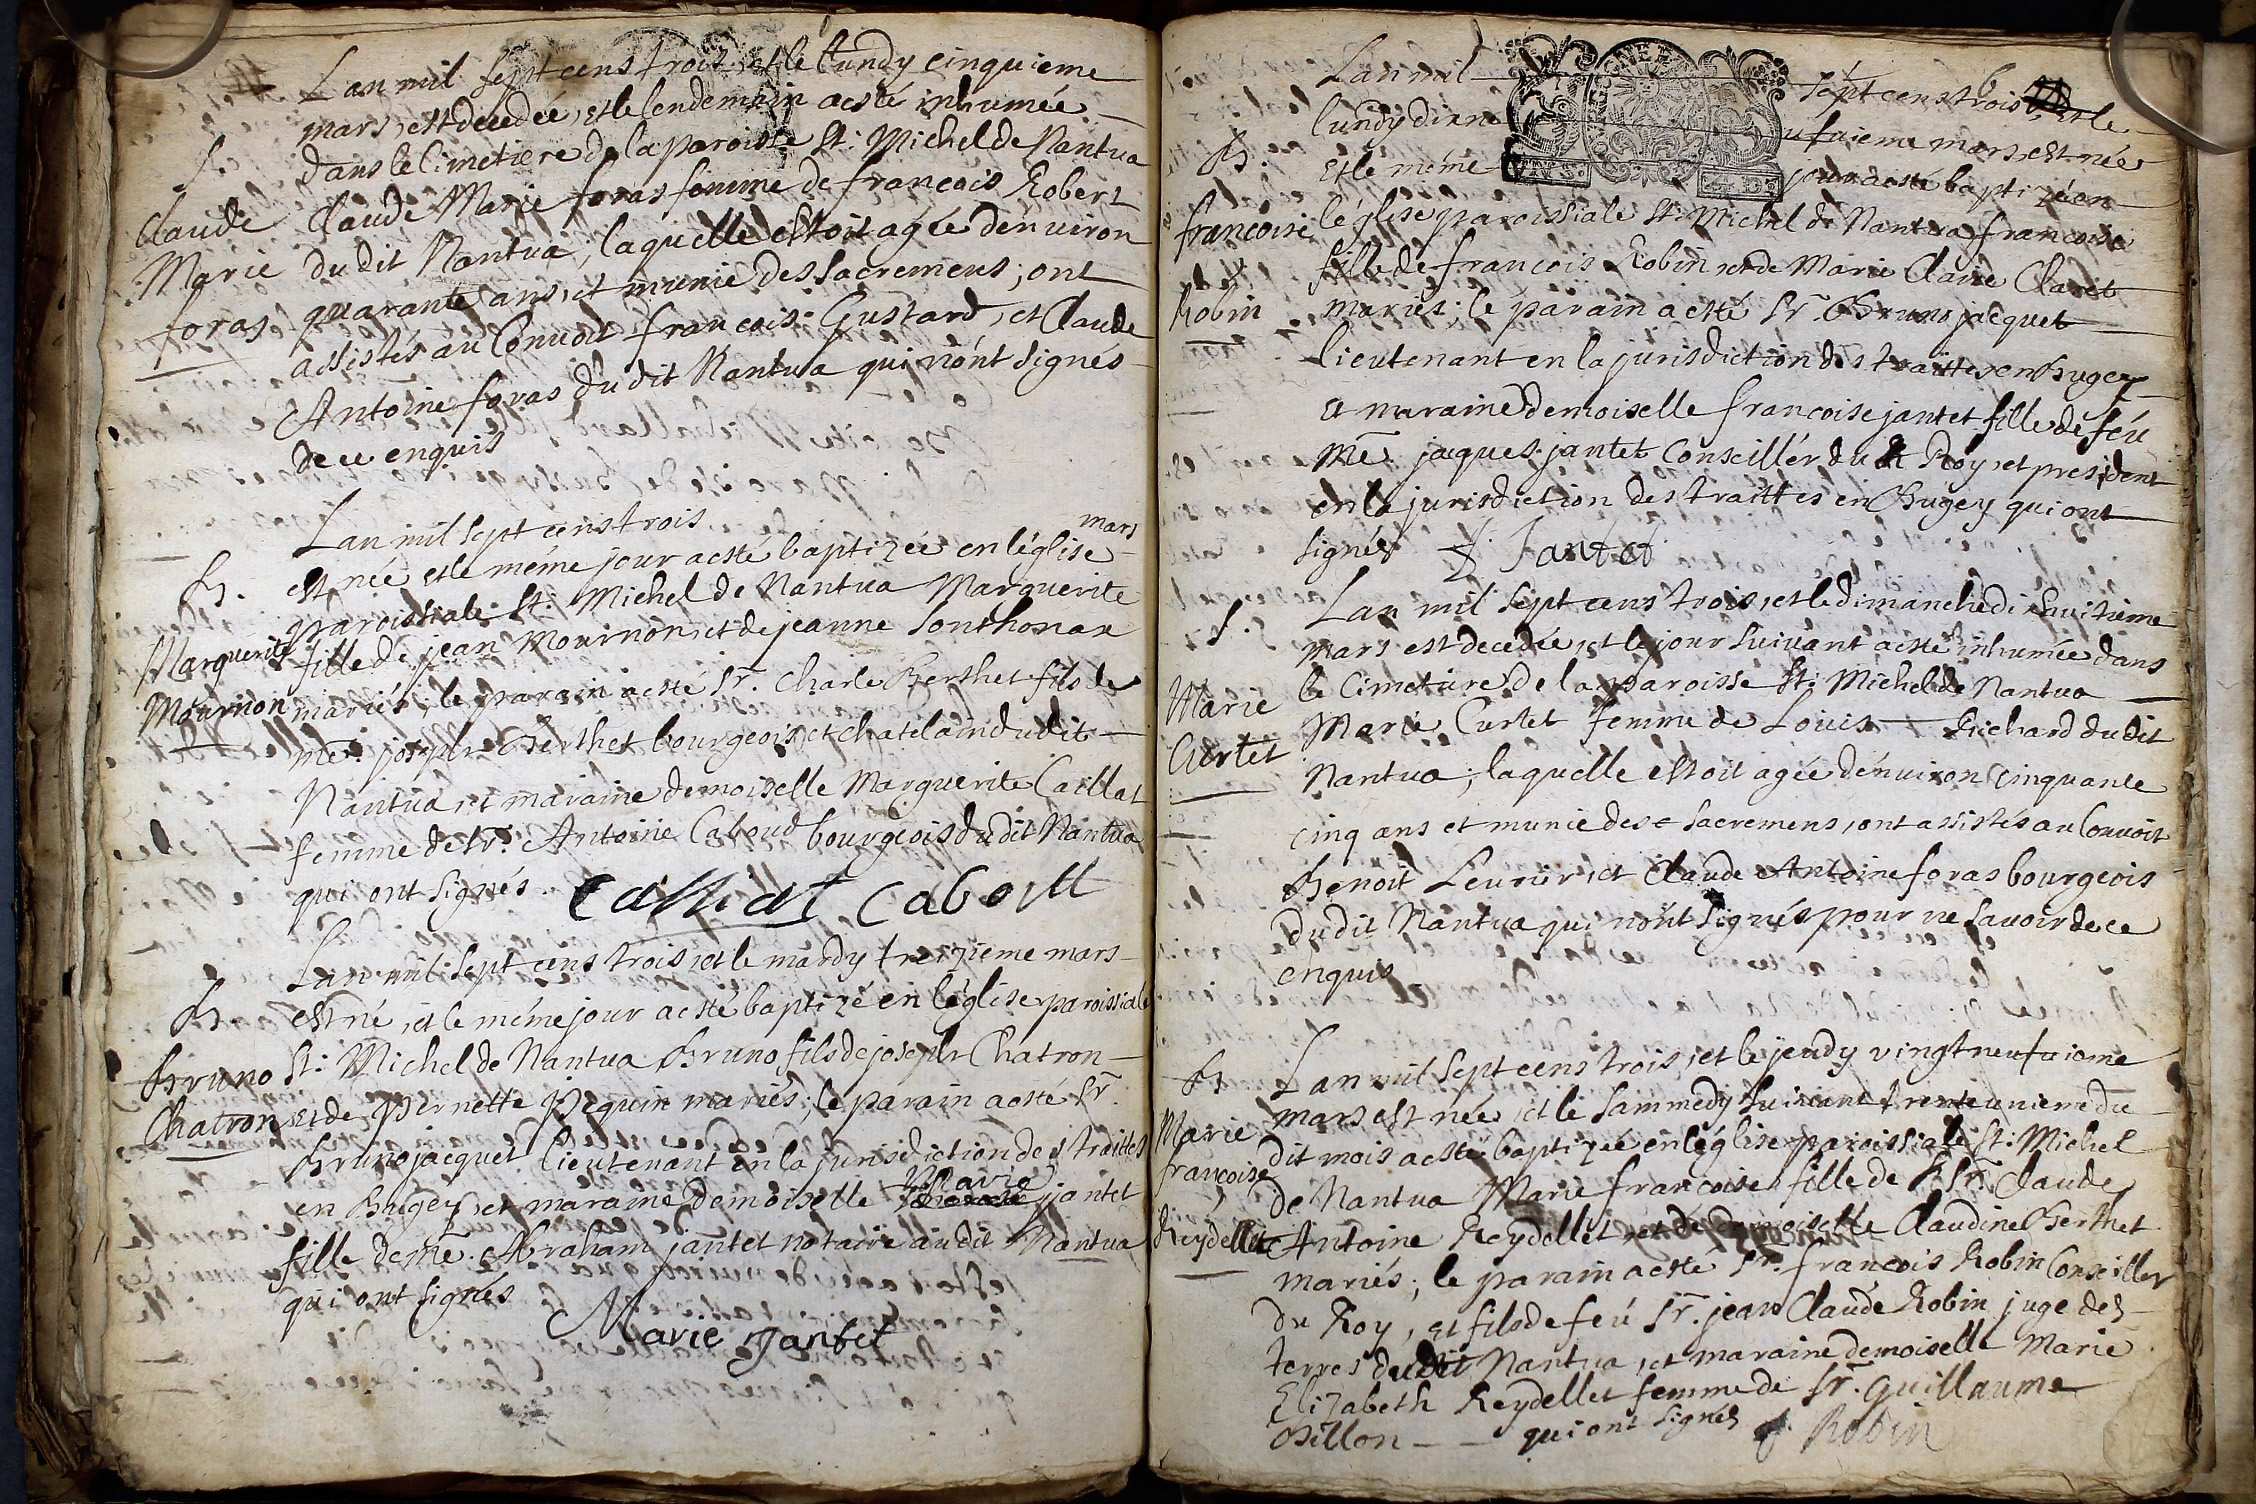 Lan mil sept cens trois, et le lundy cinquieme
mars, est decedée, et le lendemain a esté inhumée
S. dans le Cimetiere de la paroisse St. Michel de Nantua
Claude Claude Marie foras femme de francois Robert
Marie du dit Nantua, laquelle estoit agée denuiron
foras quarante ans, et munie des sacremens; ont
assistés au Conuoit francois Gustard, et Claude
Antoine foras du dit Nantua qui n'ont signés
de ce enquis
Lan mil sept cens trois mars
B. est née et le méme jour a esté baptizée en léglise
paroissiale St. Michel de Nantua Marguerite
Marguerite fille de jean Mournon, et de jeanne Sonthonax
Mournon mariés, le parain a esté Sr. Charle Berthet fils de
me. joseph Berthet bourgeois et chatelain du dit
Nantua et maraine demoiselle Marguerite Caillat
femme de Sr. Antoine Caboud bourgeois du dit Nantua
qui ont signés Calliat Caboutt
Lan mil sept cens trois, et le mardy trezieme mars
B. est né, et le méme jour a esté baptizé en léglise paroissiale
Bruno St. Michel de Nantua Bruno fils de joseph Chatron
Chatron et de Pernette Pequin mariés, le parain a esté Sr.
Bruno jacquet lieutenant en la jurisdiction des traittes
en Bugey, et maraine demoiselle Marie jantet
fille de me. Abraham jantet notaire au dit Nantua
qui ont signés
Marie Jantet
6
Lan mil sept cens trois, et le
lundy dixneufuieme mars, est née
B. Et le méme jour a esté baptizée en
francoise léglise paroissiale St. Michel de Nantua, francoise
fille de francois Robin, et de Marie Claire Claret
Robin mariés; le parain a esté Sr. Bruno jacquet
lieutenant en la jurisdiction des traittes en Bugey
et maraine demoiselle francoise jantet fille de féu
Me. jaques jantet Conseillér du Roy, et president
en la jurisdiction des traittes en Bugey qui ont
signés f. Jantet
Lan mil sept cens trois, et le dimanche dixhuitieme
S. mars est decedée, et le jour suiuant a esté inhumée dans
Marie le Cimetiere de la paroisse St. Michel de Nantua
Marie Curtet femme de Louis Richard du dit
Curtet Nantua; laquelle estoit agée dénuiron Cinquante
cinq ans et munie des sacremens, ont assistés au Conuoit
Benoit Leurier, et Claude Antoine foras bourgeois
du dit Nantua qui n'ont signés pour ne sauoir de ce
enquis
B. Lan mil sept cens trois, et le jeudy vingt neufuieme
mars est née, et le Sammedy suiuant trente unieme du
Marie dit mois a esté baptizée en léglise paroissiale St. Michel
francoise de Nantua Marie francoise fille de Sr. Claude
Reydellet Antoine Reydellet, et de demoiselle Claudine Berthet
mariés; le parain a esté Sr. francois Robin Conseiller
du Roy, et fils de feú Sr. jean Claude Robin juge des
terres du dit Nantua, et maraine demoiselle Marie
Elizabeth Reydellet femme de Sr. Guillaume
Billon qui ont signés f. Robin